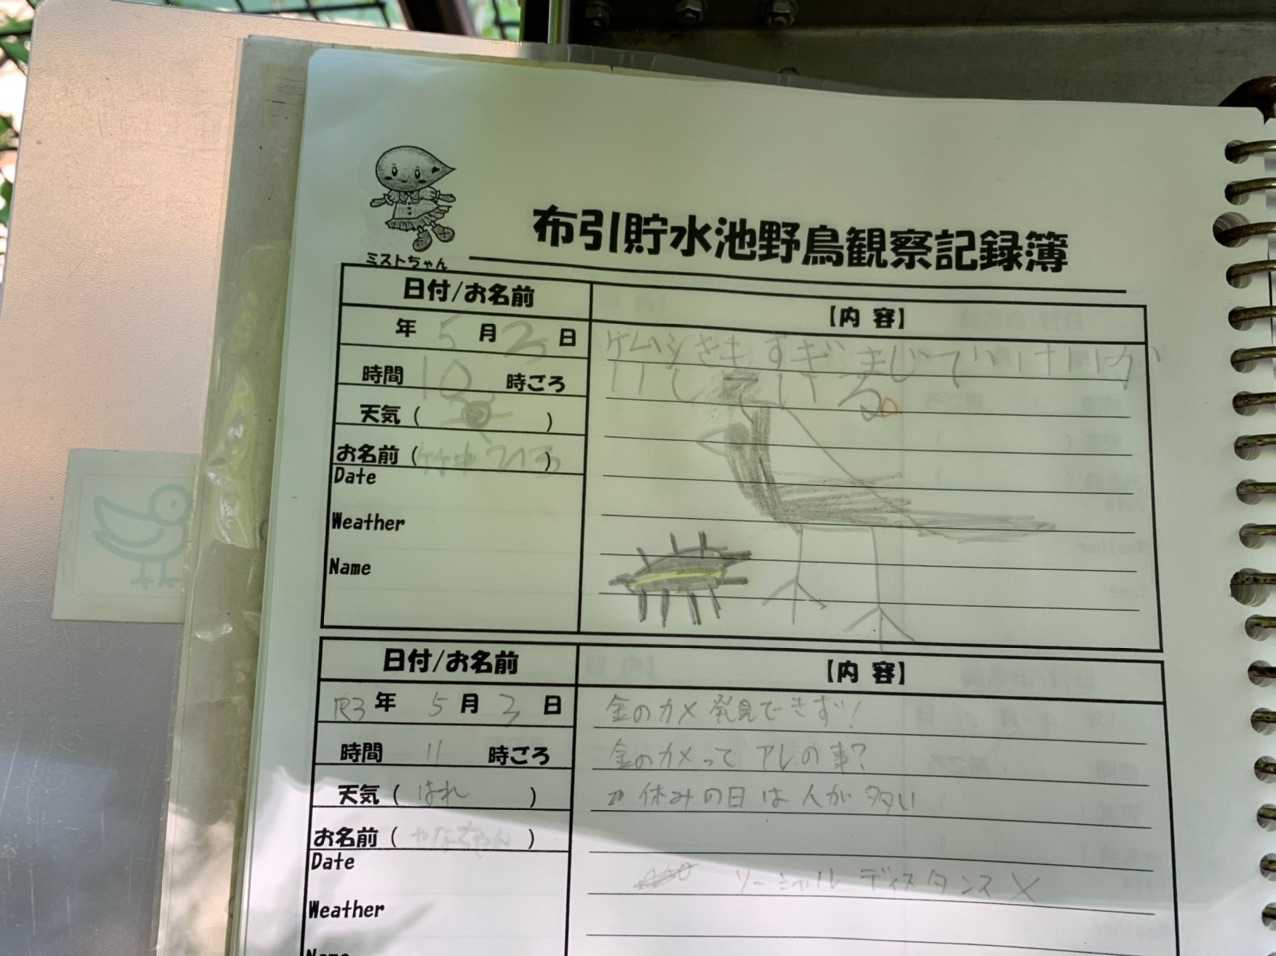 ミストちゃん
布引貯水池野鳥観察記録簿
日付/お名前
【内 容】
年 5 月 3 日
ケムシきもすぎ まじで
時間 10 時ごろ
いる。
天気 ( )
お名前 ( )
Date
Weather
Name
日付/お名前
【内 容】
R3年 5 月 3 日
金のカメ 発見できず!
時間 11 時ごろ
金のカメって アレの事?
天気 ( はれ )
休みの日は人が多い
お名前 ( )
Date
ソーシャルディスタンス×
Weather
Name